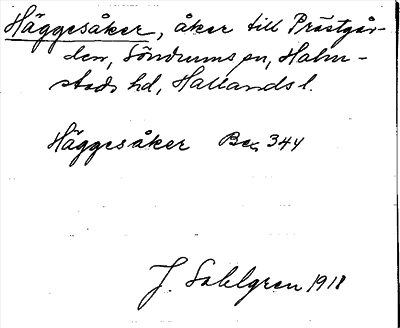 Häggesåker, åker till Prästgår-
den, Söndrums sn, Halm-
stads hd, Hallands l.
Häggesåker Bex 344
J. Sahlgren 1918